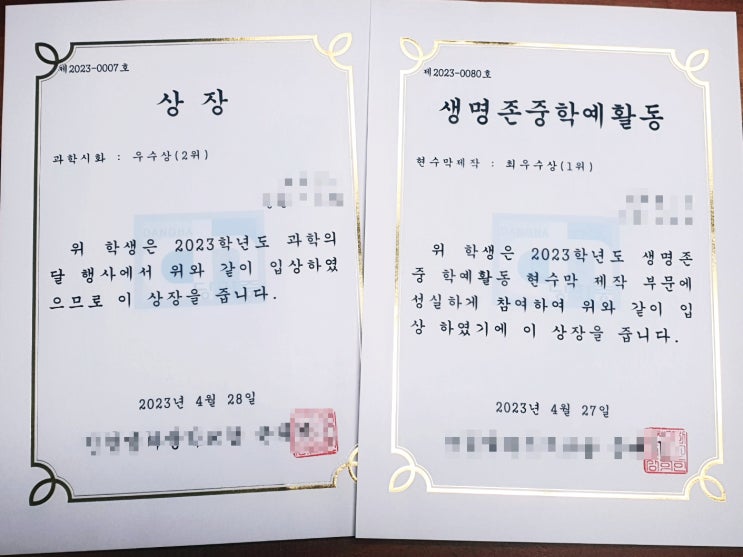 제2023-0007호
상 장
과학시화 : 우수상(2위)
위 학생은 2023학년도 과학의
달 행사에서 위와 같이 입상하였
으므로 이 상장을 줍니다.
2023년 4월 28일
제2023-0080호
생명존중학예활동
현수막제작 : 최우수상(1위)
위 학생은 2023학년도 생명존
중 학예활동 현수막 제작 부문에
성실하게 참여하여 위와 같이 입
상 하였기에 이 상장을 줍니다.
2023년 4월 27일